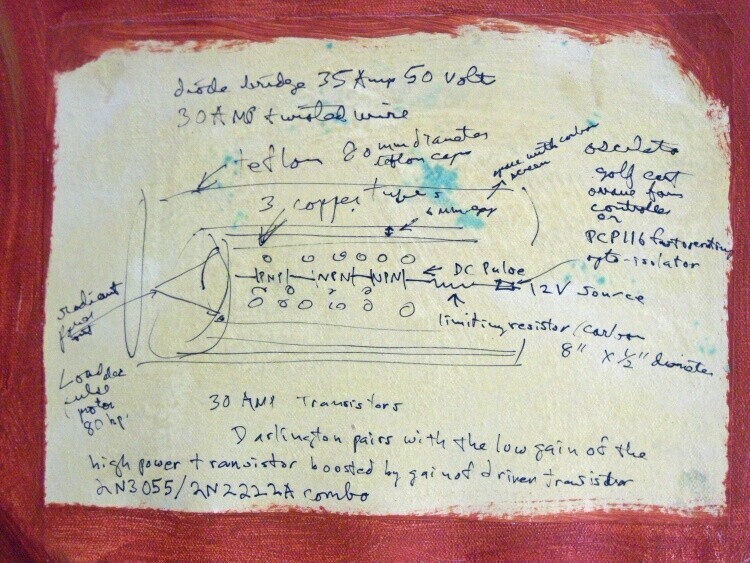 diode bridge 35 Amp 50 Volt
30 AMP twisted wire
teflon 80 mm diameter
teflon caps
space with carbon
screen
3 copper tubes
6 mm gap
golf cart
controller
or
PCP116 fast operating
opto-isolator
PNP NPN NPN
DC Pulse
12V source
limiting resistor/carbon
8" x 1/2" diameter
radiant
Load
pulse
motor
80 hp
30 AMP Transistors
Darlington pairs with the low gain of the
high power transistor boosted by gain of driver transistor
2N3055/2N2222A combo